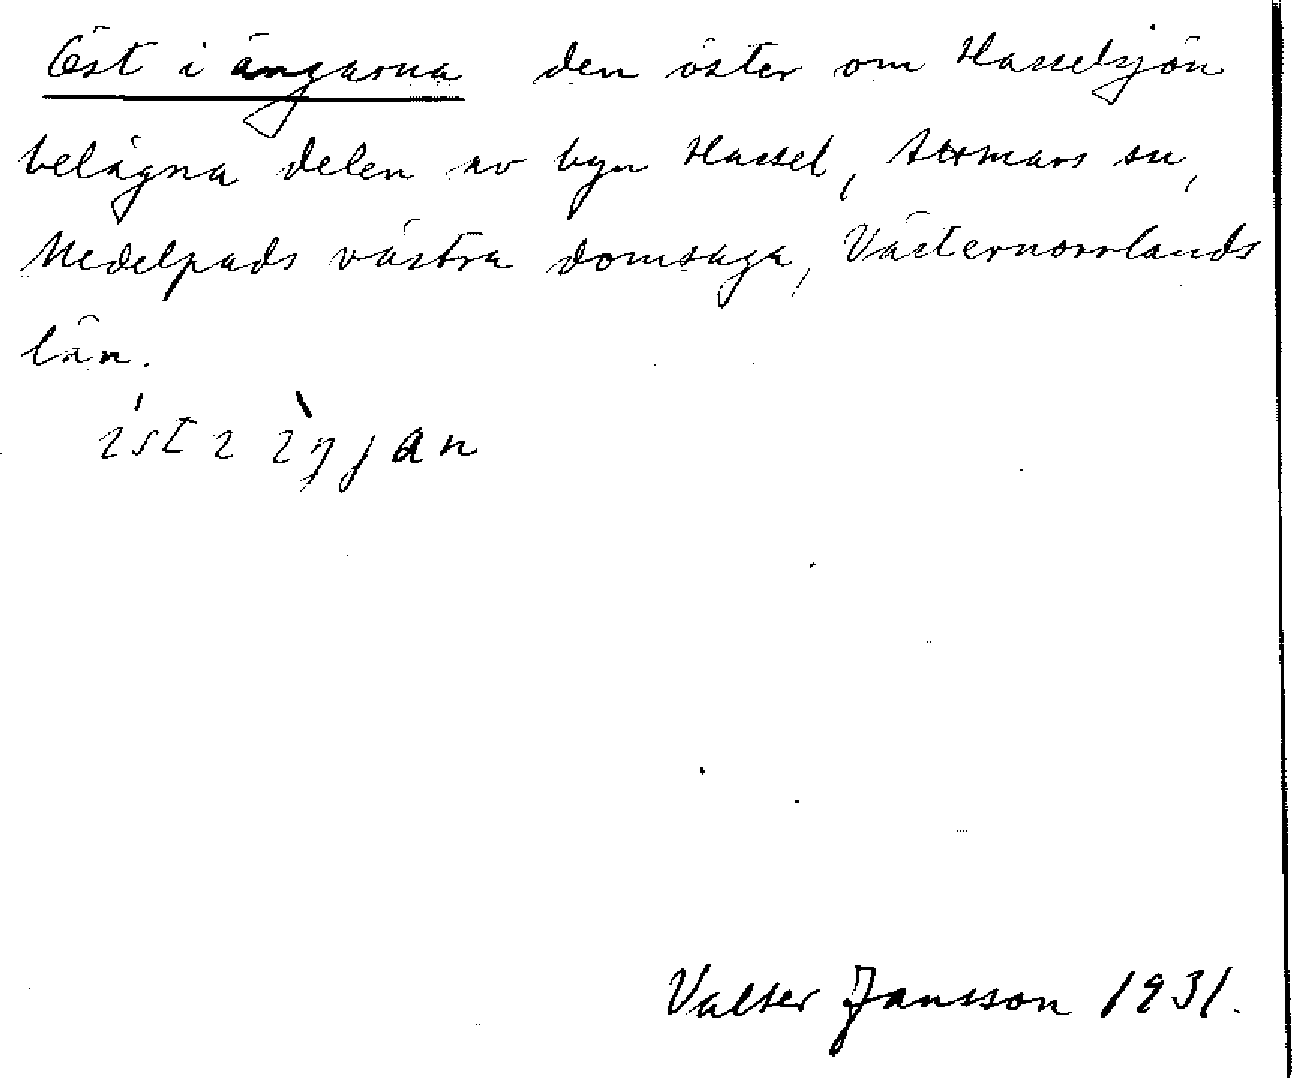 Öst i ängarna den öster om Hasselsjön
belägna delen av byn Hassel, Attmars sn,
Medelpads västra domsaga, Västernorrlands
län.
Valter Jansson 1931.